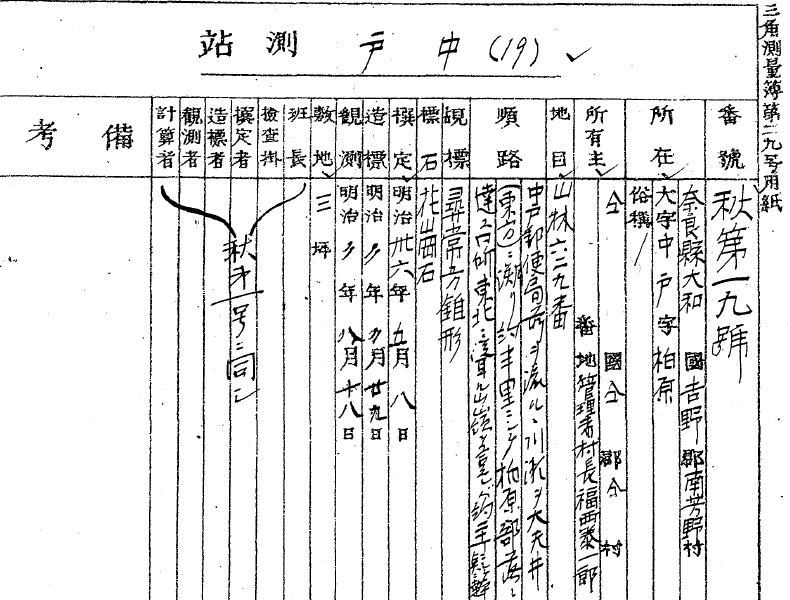 三角測量簿第二九号用紙
站測 戸中 (19)
番號 秋第一九號
所在 奈良縣大和國吉野郡南芳野村
大字中戸字柏原
俗稱
所有主 仝國仝郡仝村
番地管理者村長福西泰一郎
地目 山林六二九番
順路 中戸郵便局
(東方)ニ溯リ約半里ニシテ柏原部落ニ
達ス
覘標 尋常方錐形
標石 花崗石
撰定 明治卅六年五月八日
造標 明治〃年〃月廿九日
観測 明治〃年八月十八日
敷地 三坪
班長
檢査掛
撰定者
造標者
観測者
計算者
秋第一号ニ同シ
備考